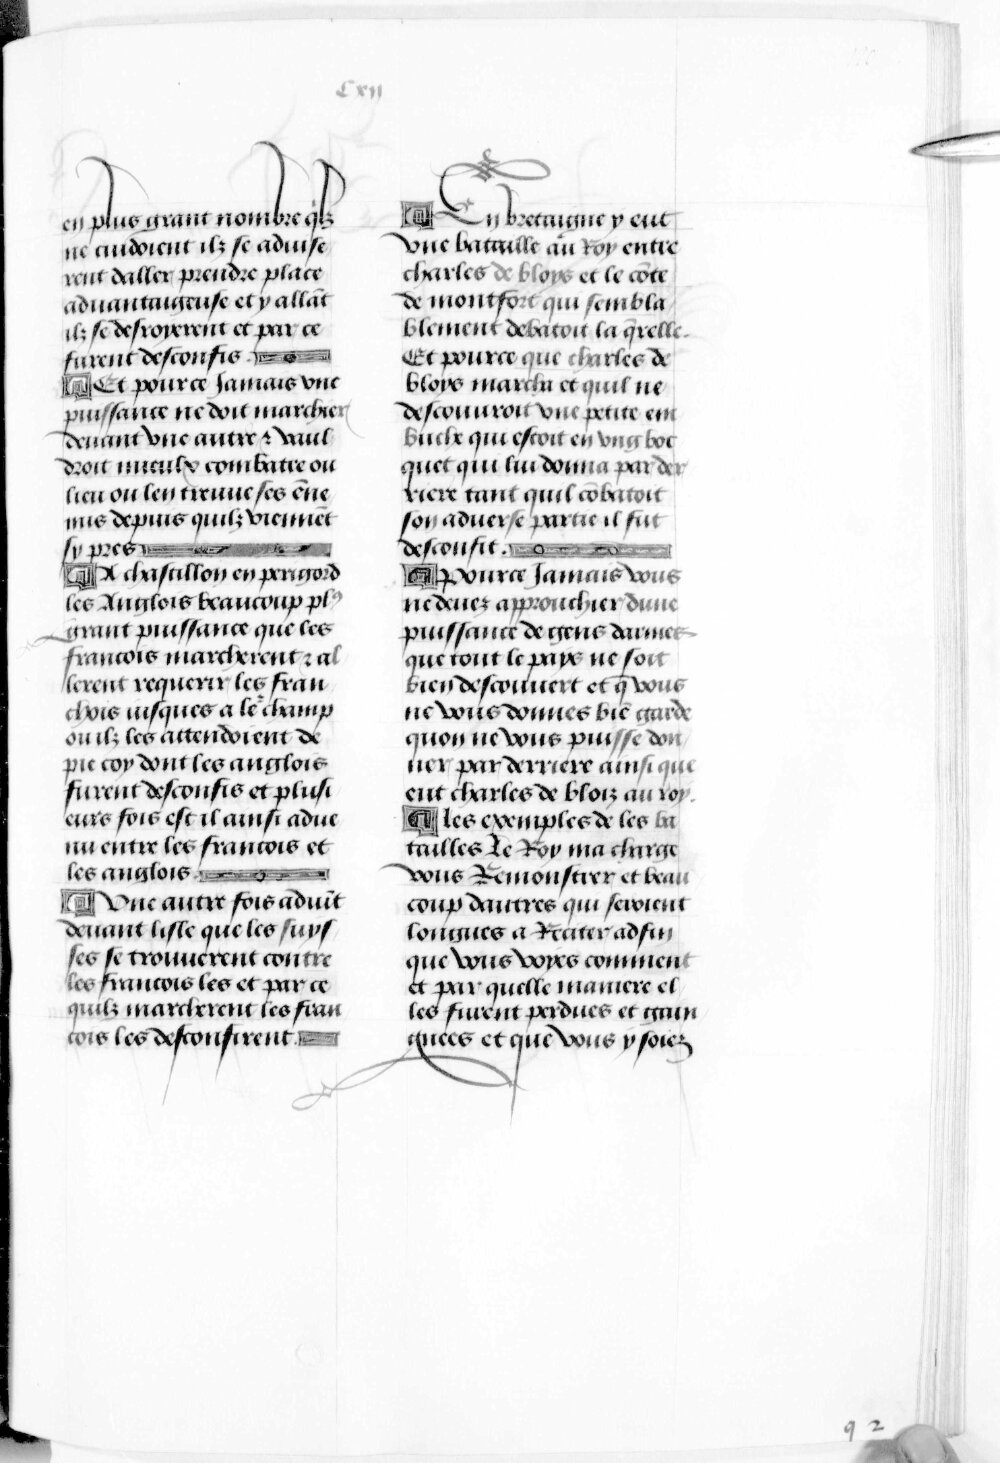 Cxij
en plus grant nombre qilz
ne cuidoient ilz se aduise
rent daller prendre place
aduantaigeuse et y allãt
ilz se desroyerent et par ce
furent desconfis.
Et pource Jamais vne
puissance ne doit marchier
deuant vne autre ⁊ vaul
droit mieulx combatre ou
lieu ou len treuue ses ẽne
mis depuis quilz viennẽt
sy pres
A chastillon en perigord
les Anglois beaucoup plꝰ
grant puissance que les
francois marcherent ⁊ al
lerent requerir les fran
chois iusques a le champ
ou ilz les attendoient de
pie coy dont les anglois
furent desconfis et plusi
eurs fois est il ainsi adue
nu entre les francois et
les anglois.
Vne autre fois aduĩt
deuant lisle que les suys
ses se trouuerent contre
les francois les et par ce
quilz marcherent les fran
cois les desconfirent.
En bretaigne y eut
vne bataille au Roy entre
charles de bloys et le cõte
de montfort qui sembla
blement debatoit la q̃relle.
Et pource que charles de
bloys marcha et quil ne
descouuroit vne petite em
buche qui estoit en vng boc
quet qui lui donna par der
riere tant quil cõbatoit
son aduerse partie il fut
desconfit.
Pource Jamais vous
ne deuez approuchier dune
puissance de gens darmes
que tout le pays ne soit
bien descouuert et q̃ vous
ne vous donnes biẽ garde
quon ne vous puisse don
ner par derriere ainsi que
eut charles de bloiz au roy.
les exemples de les ba
tailles Le Roy ma charge
vous Remonstrer et beau
coup dautres qui seroient
longues a Reciter adfin
que vous voyes comment
et par quelle maniere el
les furent perdues et gain
gnees et que vous y soiez
92